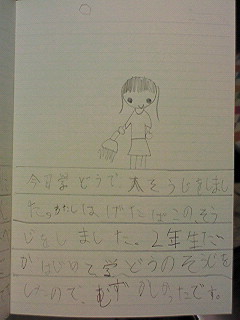 今日学どうで、大そうじをしまし
た。わたしは、げたばこのそう
じをしました。2年生だ
かはじめて学どうのそうじを
したので、むずかしかったです。